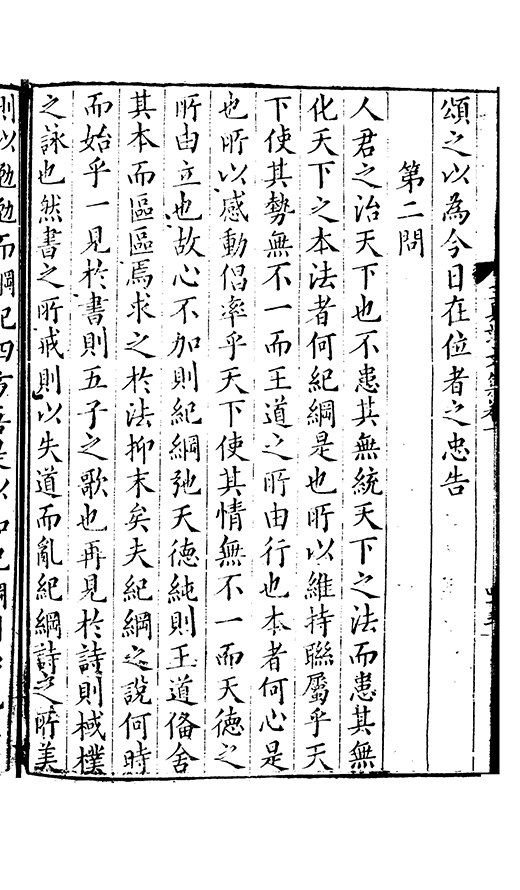 頌之以為今日在位者之忠告
第二問
人君之治天下也不患其無統天下之法而患其無
化天下之本法者何紀綱是也所以維持聯屬乎天
下使其勢無不一而王道之所由行也本者何心是
也所以感動倡率乎天下使其情無不一而天德之
所由立也故心不加則紀綱弛天德純則王道俻舍
其本而區區焉求之於法抑末矣夫紀綱之說何時
而始乎一見於書則五子之歌也再見於詩則棫樸
之詠也然書之所戒則以失道而亂紀綱詩之所美
則以勉勉而綱紀四方